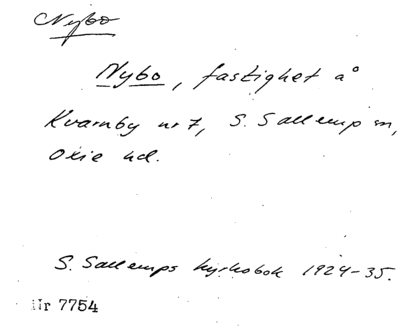 Nybo
Nybo, fastighet å
Kvarnby nr 7, S. Sallerup sn,
Oxie hd.
S. Sallerups kyrkobok 1924-35.
Nr 7754